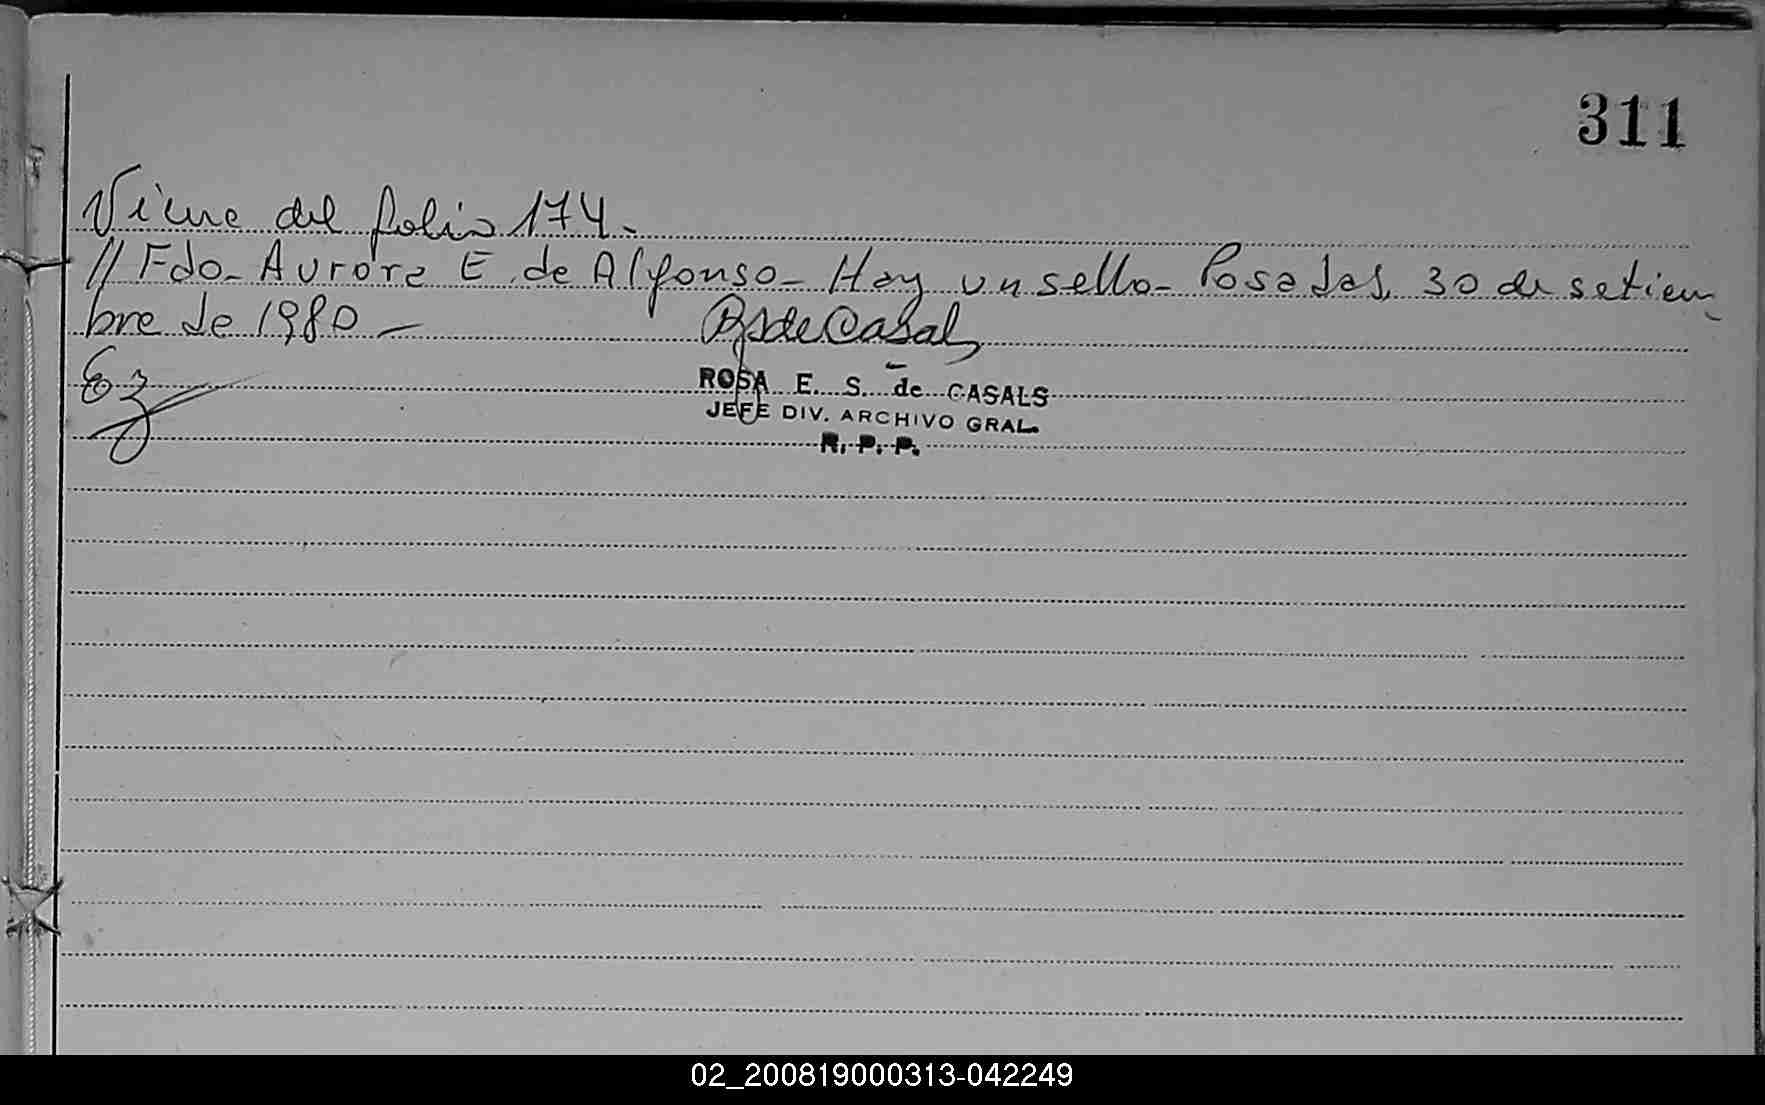 311
Viene del folio 174.-
// Fdo- Aurora E. de Alfonso- Hay un sello- Posadas, 30 de setiem
bre de 1980 -
RSdeCasals
ROSA E. S. de CASALS
JEFE DIV. ARCHIVO GRAL.
R. P. P.
02_200819000313-042249